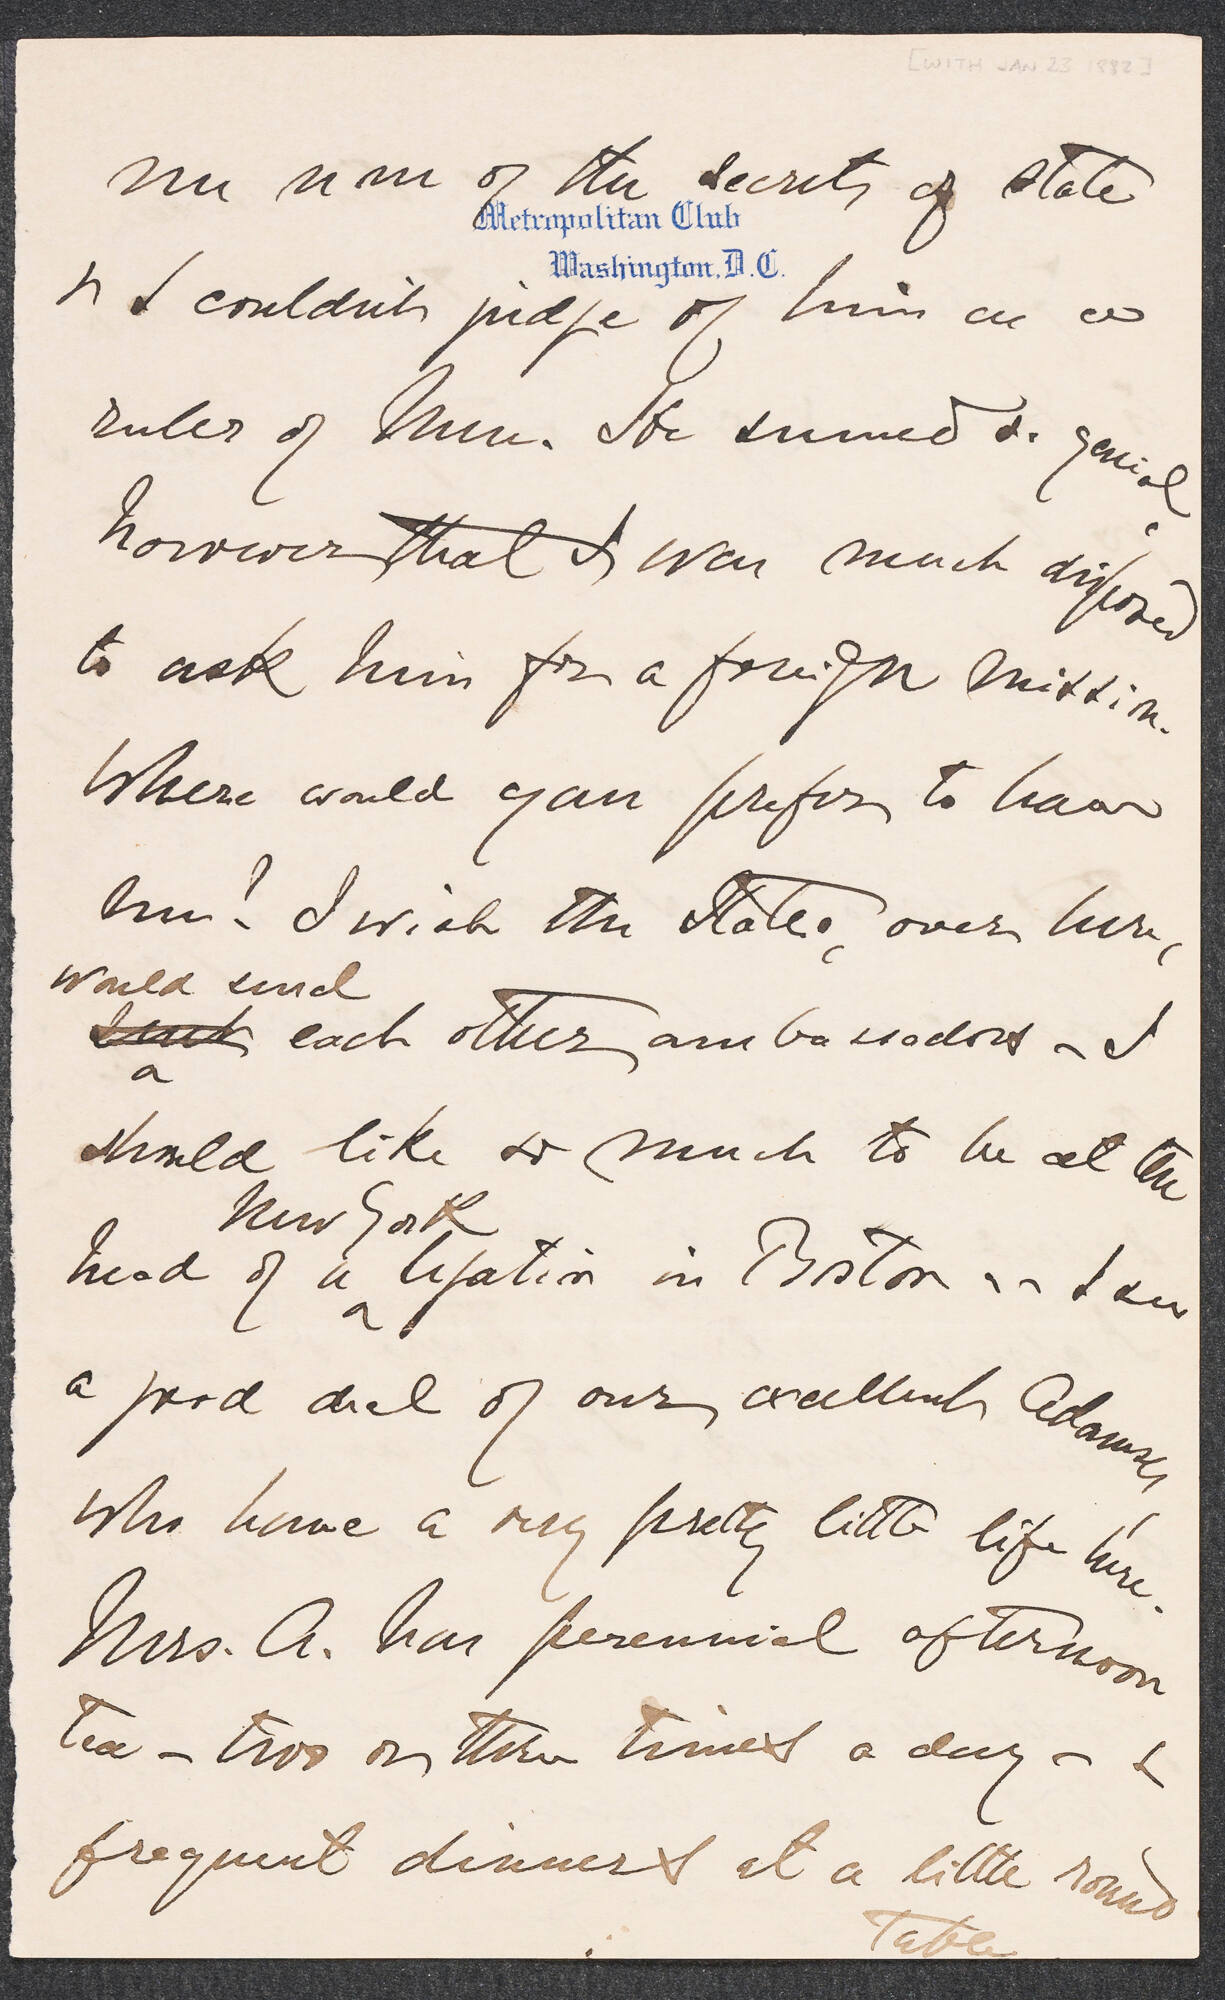 [WITH JAN 23 1882]
me none of the secrets of state
Metropolitan Club
Washington, D.C.
& I couldn't judge of him as a
ruler of men. He seemed so genial,
however that I was much disposed
to ask him for a foreign mission.
Where would you prefer to have
me? I wish the States, over here,
would send
sent each other ambassadors – I
should like so much to be at the
New York
head of a legation in Boston -- I see
a good deal of our excellent Adamses,
who have a very pretty little life here.
Mrs. A. has perennial afternoon
tea – two or three times a day – &
frequent dinners at a little round
table